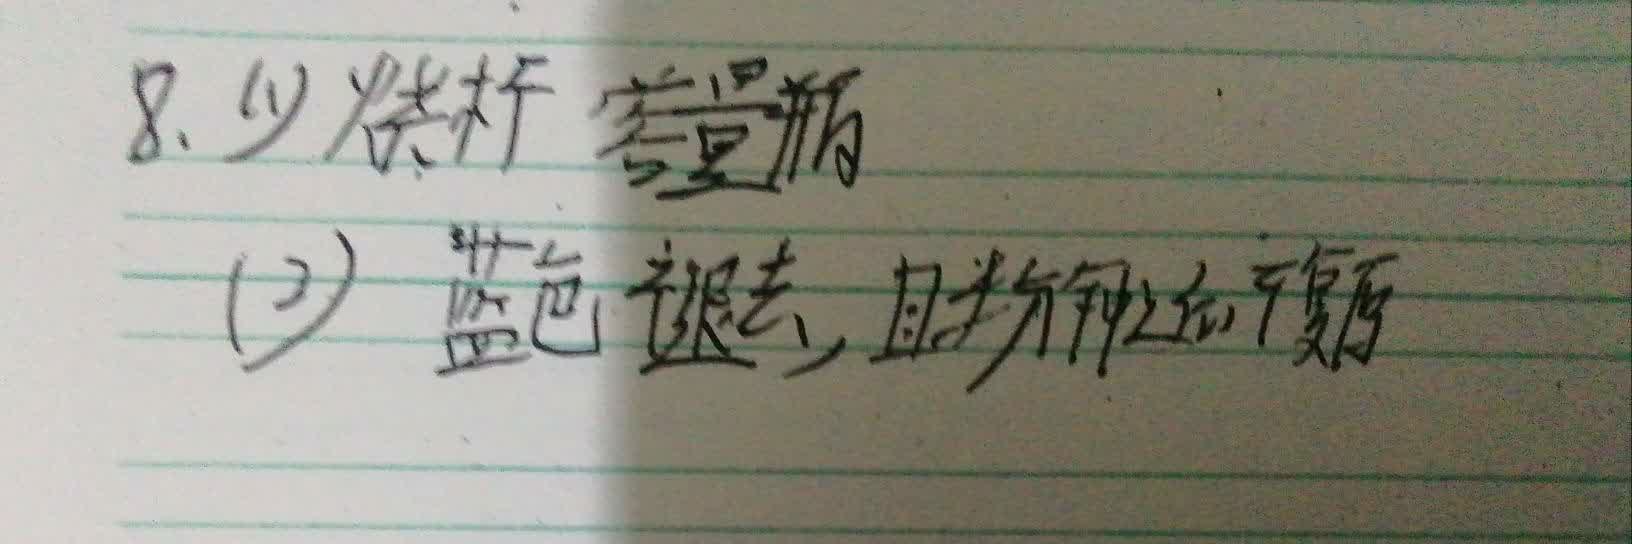 8. (1) 烧杯 容量瓶
(2) 蓝色褪去, 且半分钟之后不复原